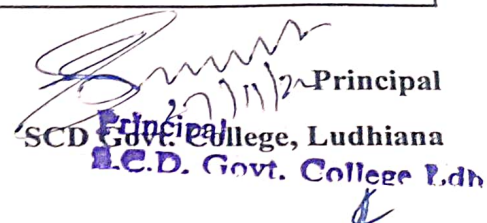 Principal
SCD Govt. College, Ludhiana
Principal
S.C.D. Govt. College Ldh